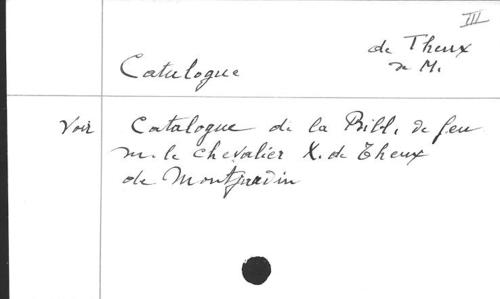 III
de Theux
de M.
Catalogue
Voir Catalogue de la Bibl. de feu
m. le chevalier X. de Theux
de Montjardin